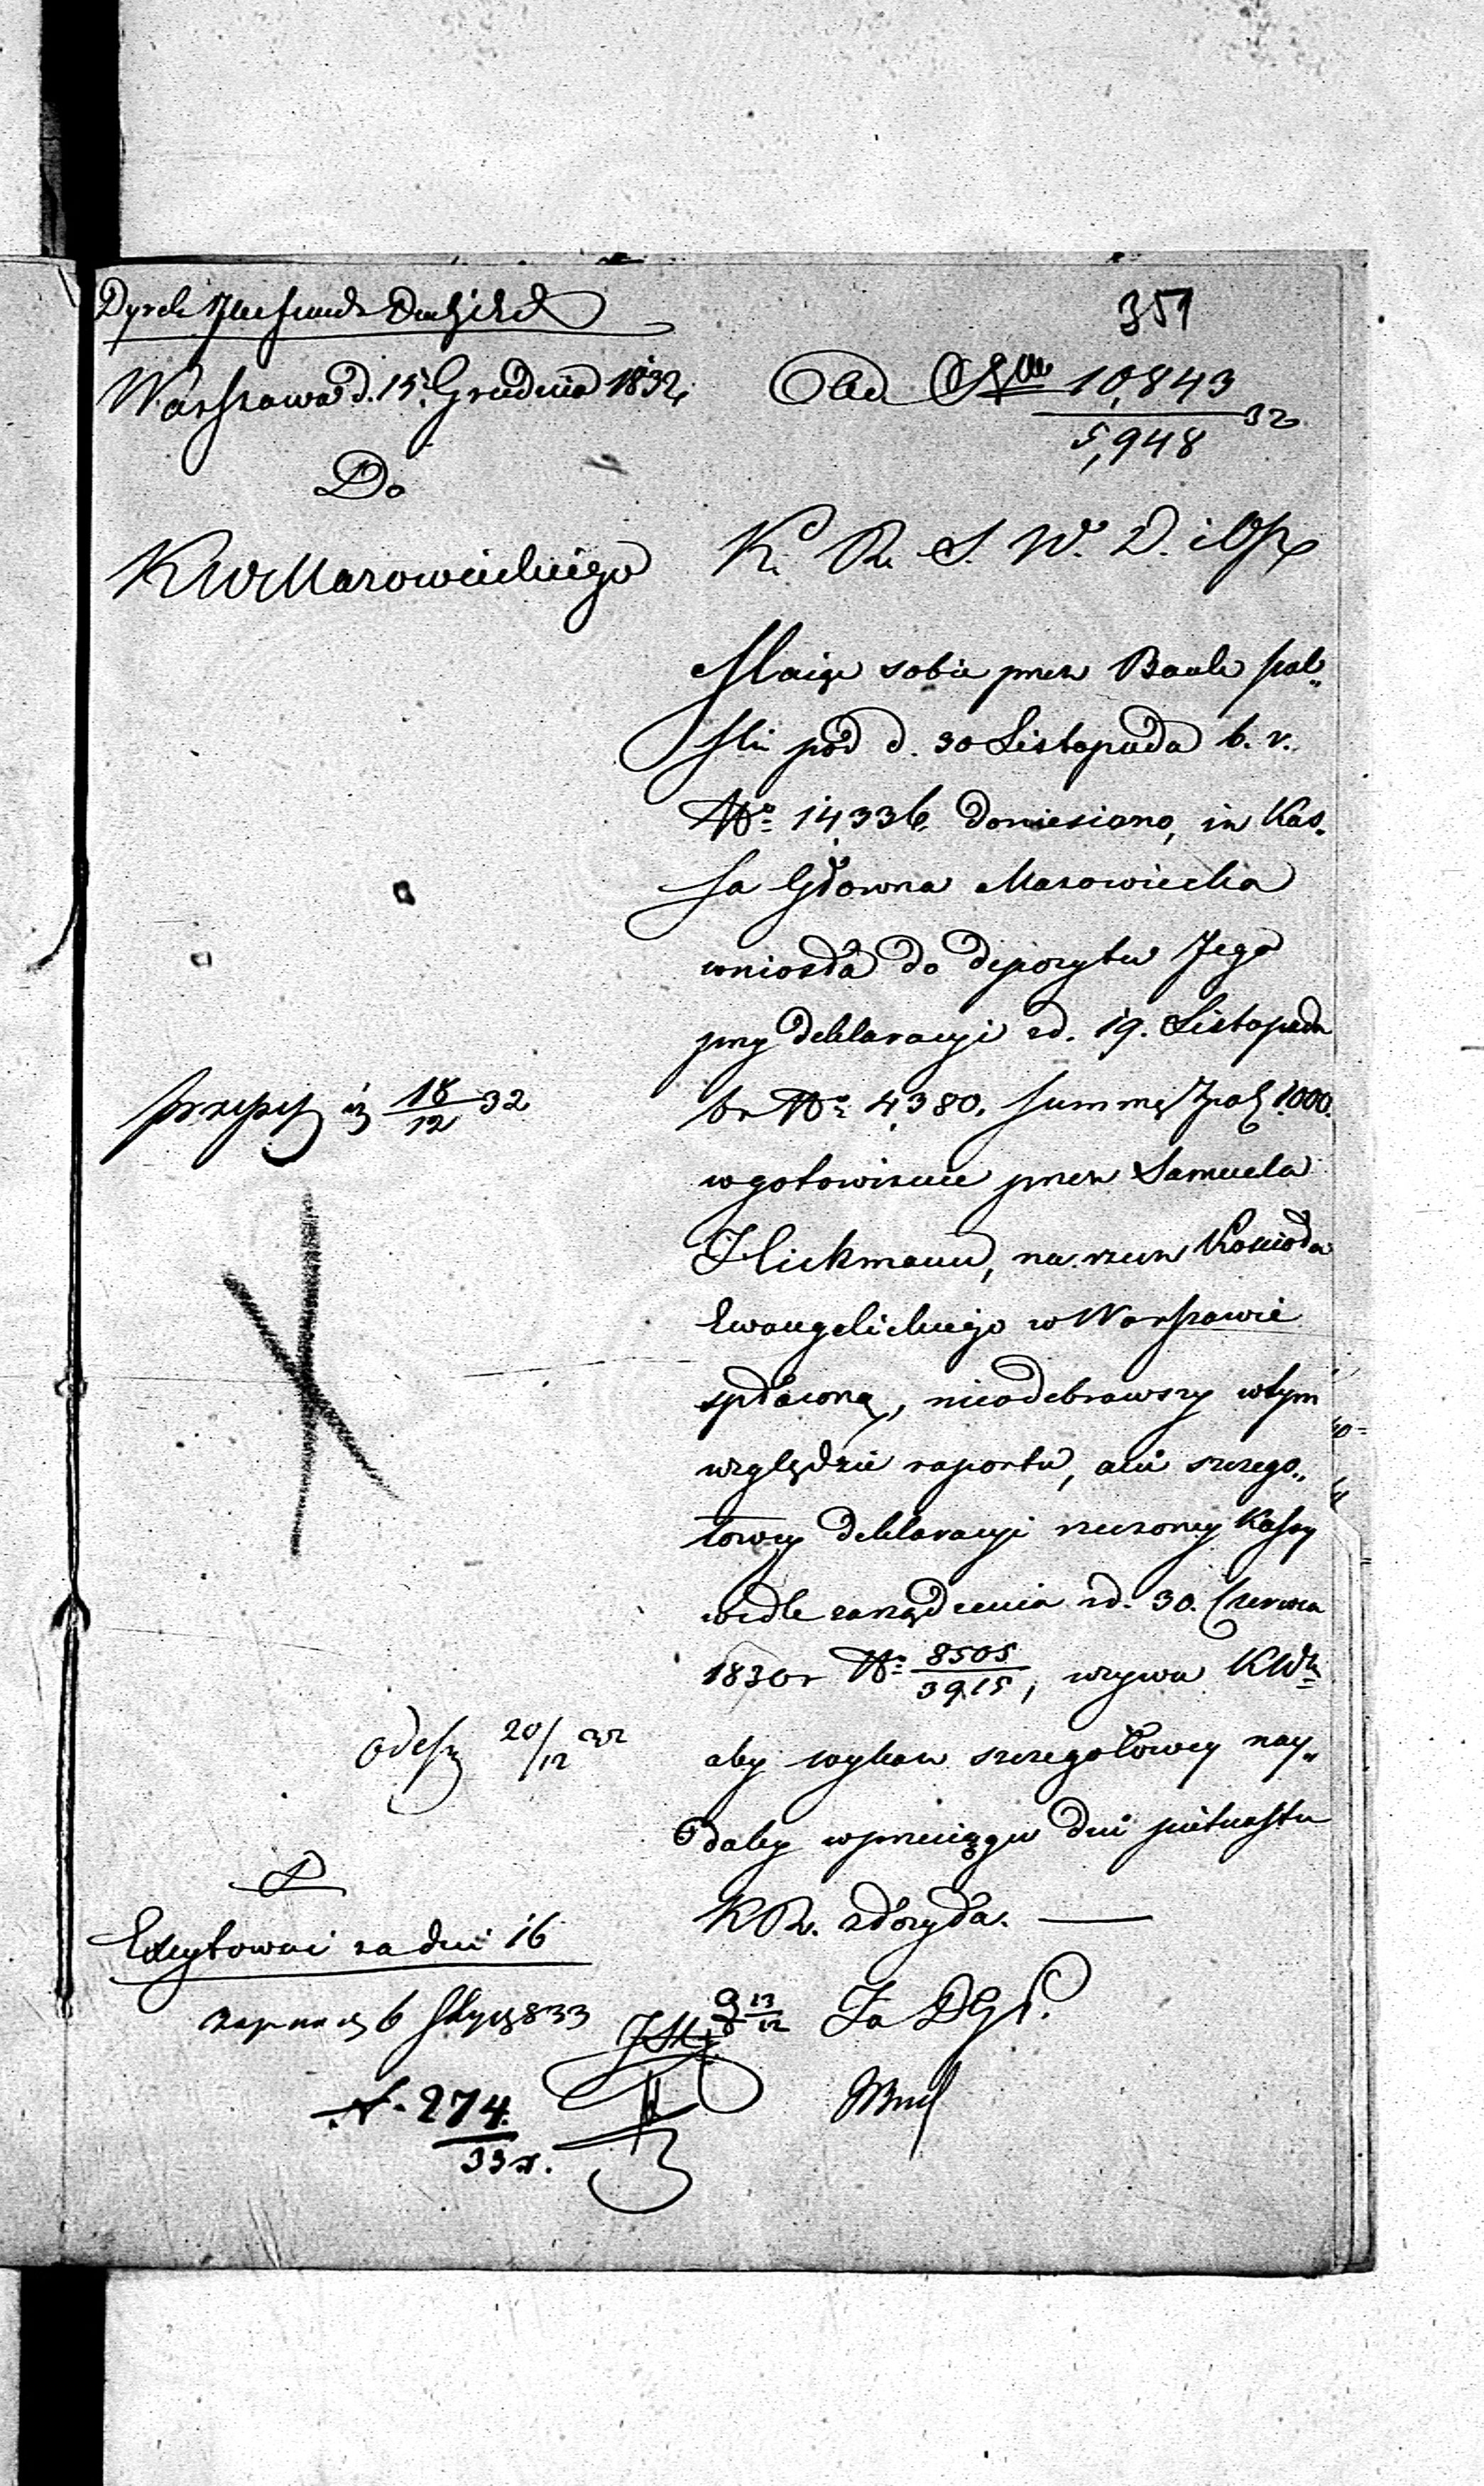 351
Warszawa d. 15. Grudnia 1832.
Ad 10,843
5,948 32
Do
KW Mazowieckiego
K. R. S. W. D. i OP
Maiąc sobie przez Bank pol„
ski pod d. 30 Listopada b. r.
No 14,336 doniesiono, iż Kas„
sa Główna Mazowiecka
wniosła do depozytu Jego
przy deklaracyi z d. 19. Listopada
br No 4,380. summę Zpol 1000.
w gotowiznie przez Samuela
Hickmann, na rzecz Kościoła
Ewangelickiego w Warszawie
spłaconą, nieodebrawszy w tym
względzie raportu, ani szczego„
łowey deklaracyi rzeczoney Kassy
wedle zarządzenia z d. 30. Czerwca
1830 r No 8505/3915, wzywa KWą
aby wykaz szczegółowy nay„
daley w przeciągu dni pietnastu
KR. złożyła. —
przepis 18/12 32
odesz 20/12 32
Excytować za dni 16
6 Stycz 833
13/12
Za DGl.
N. 274.
33 r.